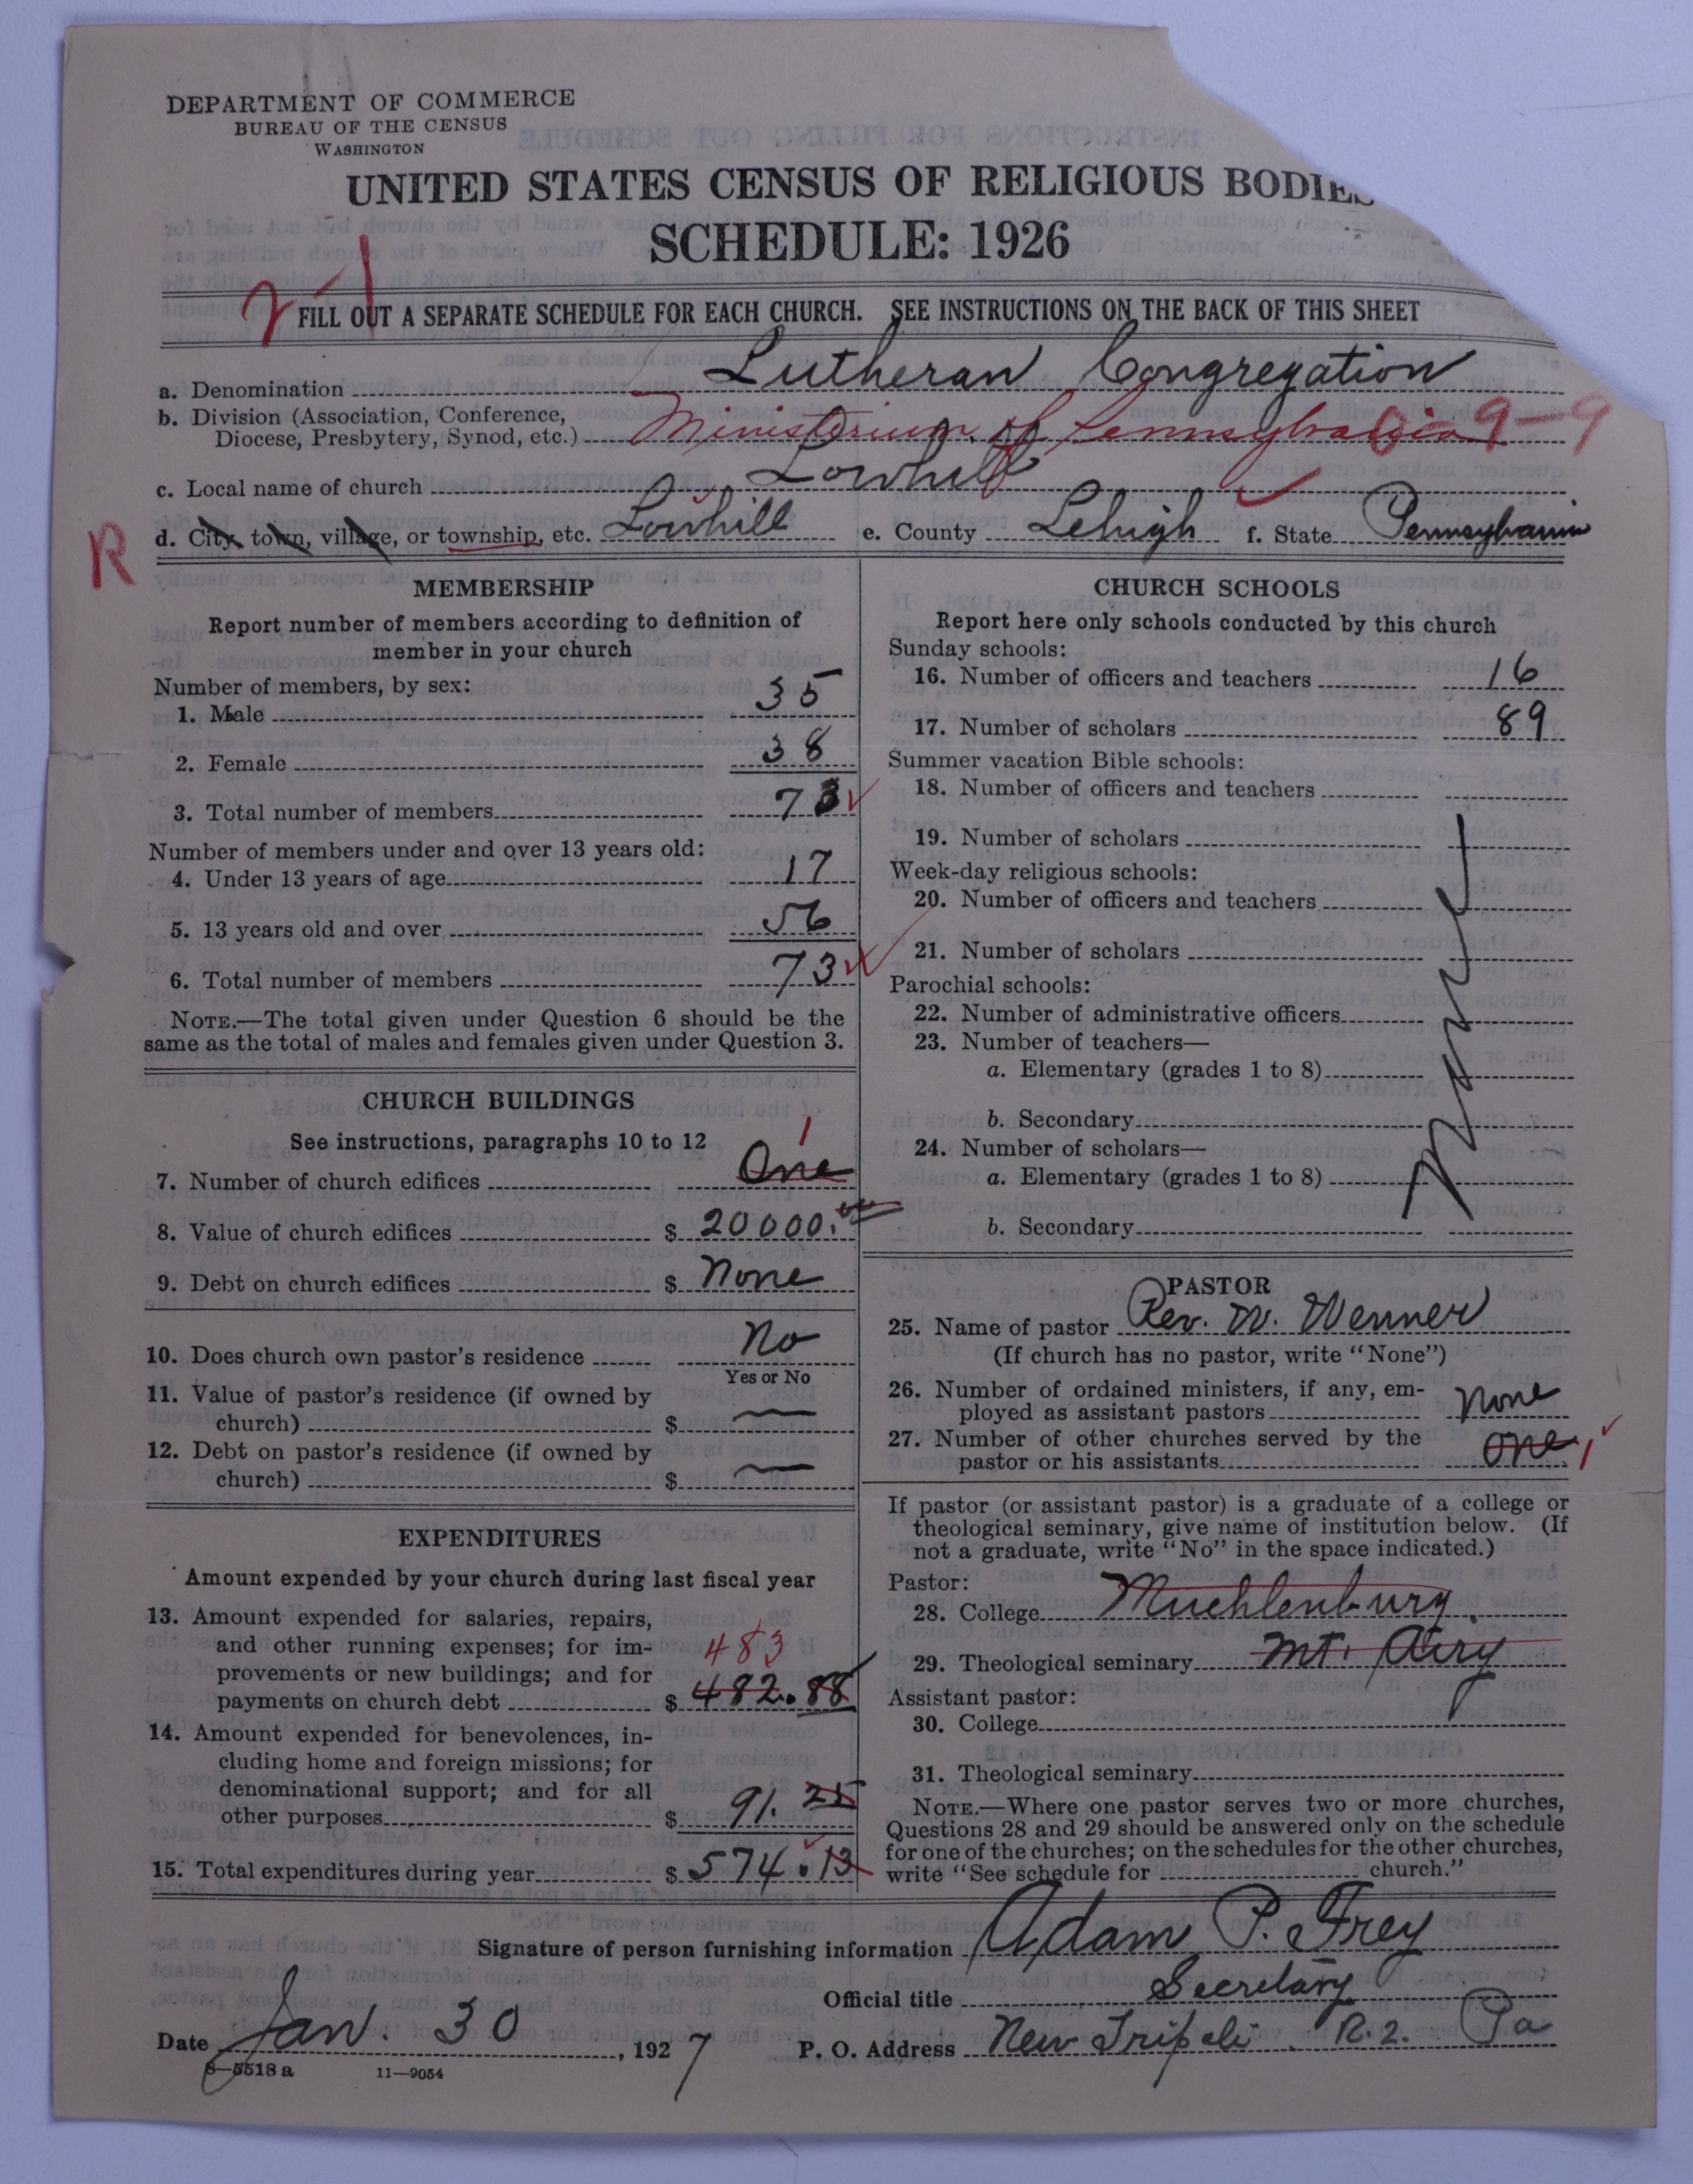 DEPARTMENT OF COMMERCE
BUREAU OF THE CENSUS
WASHINGTON
UNITED STATES CENSUS OF RELIGIOUS BODIES
SCHEDULE: 1926
FILL OUT A SEPARATE SCHEDULE FOR EACH CHURCH. SEE INSTRUCTIONS ON THE BACK OF THIS SHEET
a. Denomination Lutheran Congregation
b. Division (Association, Conference,
Diocese, Presbytery, Synod, etc.) Ministerium of Pennsylvania 9-9
c. Local name of church Lowhill
R d. City, town, village, or township, etc. Lowhill e. County Lehigh f. State Pennsylvania
MEMBERSHIP
Report number of members according to definition of
member in your church
Number of members, by sex:
1. Male 35
2. Female 38
3. Total number of members 73
Number of members under and over 13 years old:
4. Under 13 years of age 17
5. 13 years old and over 56
6. Total number of members 73
NOTE.—The total given under Question 6 should be the
same as the total of males and females given under Question 3.
CHURCH BUILDINGS
See instructions, paragraphs 10 to 12
1
7. Number of church edifices One
8. Value of church edifices $ 20000.00
9. Debt on church edifices $ None
10. Does church own pastor's residence No
Yes or No
11. Value of pastor's residence (if owned by
church) $
12. Debt on pastor's residence (if owned by
church) $
EXPENDITURES
Amount expended by your church during last fiscal year
13. Amount expended for salaries, repairs,
and other running expenses; for im- 483
provements or new buildings; and for
payments on church debt $ 482.88
14. Amount expended for benevolences, in-
cluding home and foreign missions; for
denominational support; and for all
other purposes $ 91.25
15. Total expenditures during year $ 574.13
CHURCH SCHOOLS
Report here only schools conducted by this church
Sunday schools:
16. Number of officers and teachers 16
17. Number of scholars 89
Summer vacation Bible schools:
18. Number of officers and teachers
19. Number of scholars
Week-day religious schools:
20. Number of officers and teachers
21. Number of scholars
Parochial schools:
22. Number of administrative officers
23. Number of teachers—
a. Elementary (grades 1 to 8)
b. Secondary
24. Number of scholars—
a. Elementary (grades 1 to 8)
b. Secondary
PASTOR
25. Name of pastor Rev. W. Wenner
(If church has no pastor, write "None")
26. Number of ordained ministers, if any, em-
ployed as assistant pastors None
27. Number of other churches served by the
pastor or his assistants one 1
If pastor (or assistant pastor) is a graduate of a college or
theological seminary, give name of institution below. (If
not a graduate, write "No" in the space indicated.)
Pastor:
28. College Muehlenburg
29. Theological seminary Mt. Airy
Assistant pastor:
30. College
31. Theological seminary
NOTE.—Where one pastor serves two or more churches,
Questions 28 and 29 should be answered only on the schedule
for one of the churches; on the schedules for the other churches,
write "See schedule for church."
Signature of person furnishing information Adam P. Frey
Official title Secretary
Date Jan. 30, 1927 P. O. Address New Tripoli R. 2. Pa
8—5518 a 11—9054